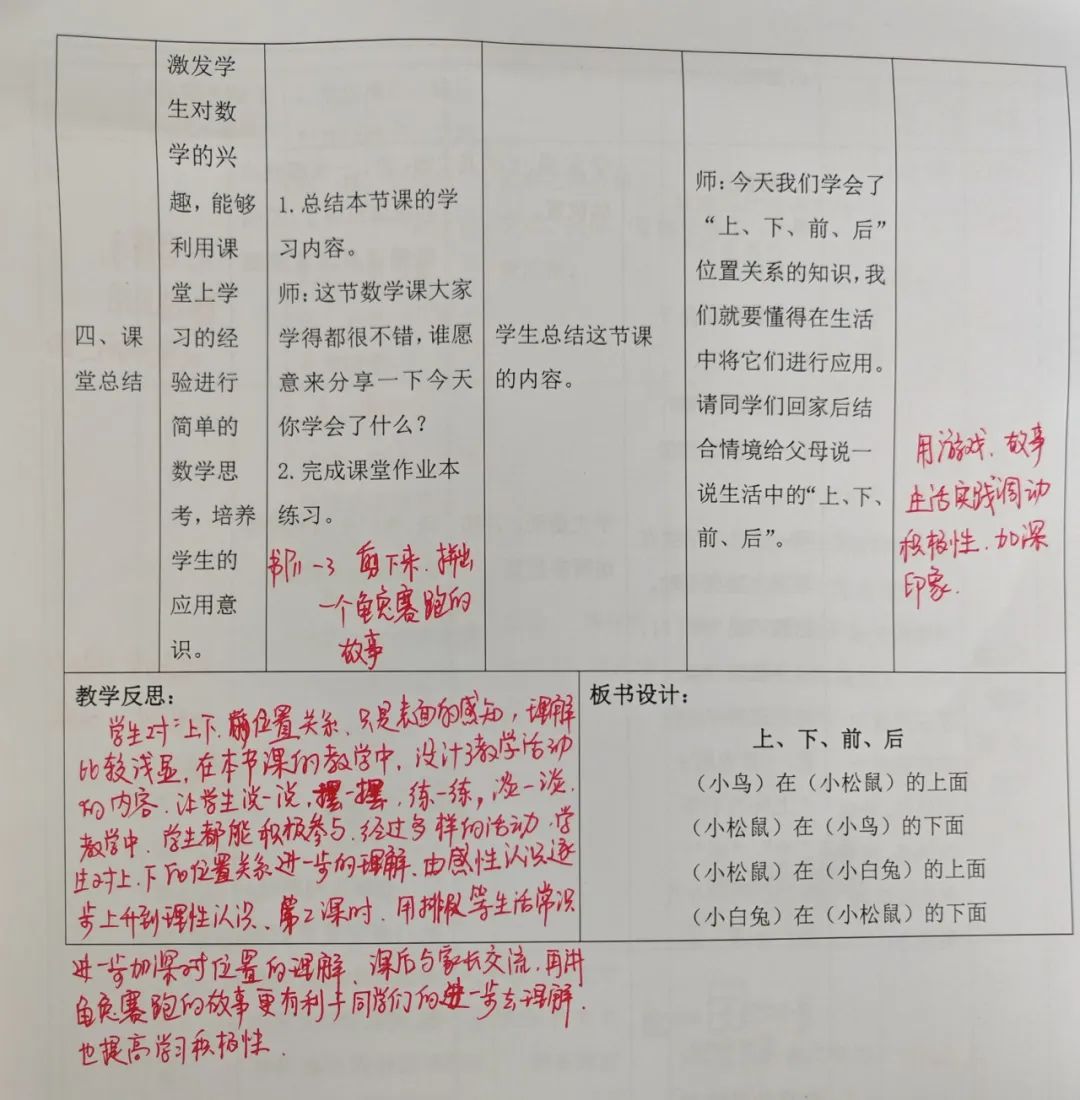 四、课
堂总结
激发学
生对数
学的兴
趣，能够
利用课
堂上学
习的经
验进行
简单的
数学思
考，培养
学生的
应用意
识。
1. 总结本节课的学
习内容。
师：这节数学课大家
学得都很不错，谁愿
意来分享一下今天
你学会了什么？
2. 完成课堂作业本
练习。
书 剪下来、拼出
一个龟兔赛跑的
故事
学生总结这节课
的内容。
师：今天我们学会了
“上、下、前、后”
位置关系的知识，我
们就要懂得在生活
中将它们进行应用。
请同学们回家后结
合情境给父母说一
说生活中的“上、下、
前、后”。
用游戏、故事
生活实践调动
积极性、加深
印象.
教学反思：
学生对上下、位置关系、只是表面的感知，理解
比较浅显，在本节课的教学中，设计了教学活动
的内容.让学生说一说，摆一摆，练一练，
教学中，学生都能积极参与.经过多样的活动，学
生对上、下的位置关系进一步的理解.由感性认识逐
步上升到理性认识、第2课时，用排队等生活常识
进一步加深对位置的理解、课后与家长交流，再讲
龟兔赛跑的故事更有利于同学们的进一步去理解.
也提高学习积极性.
板书设计：
上、下、前、后
（小鸟）在（小松鼠）的上面
（小松鼠）在（小鸟）的下面
（小松鼠）在（小白兔）的上面
（小白兔）在（小松鼠）的下面